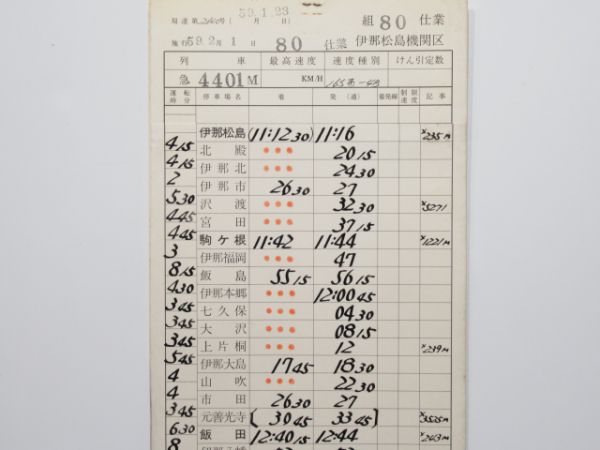 59.1.23
組 80 仕業
施行 59.2月1日 80 仕業 伊那松島機関区
列車 最高速度 速度種別 けん引定数
急 4401M KM/H
運転時分 停車場名 着 発(通) 着発線 制限速度 記事
伊那松島 (11:12 30) 11:16 ×235M
4 15 北殿 ••• 20 15
4 15 伊那北 ••• 24 30
2 伊那市 26 30 27
5 30 沢渡 ••• 32 30 ×5271
4 45 宮田 ••• 37 15
4 45 駒ヶ根 11:42 11:44 ×1221M
3 伊那福岡 ••• 47
8 15 飯島 55 15 56 15
4 30 伊那本郷 ••• 12:00 45
3 45 七久保 ••• 04 30
3 45 大沢 ••• 08 15
3 45 上片桐 ••• 12 ×239M
5 45 伊那大島 17 45 18 30
4 山吹 ••• 22 30
4 市田 26 30 27
3 45 元善光寺 [30 45 33 45] ×3525M
6 30 飯田 12:40 15 12:44 ×243M
8